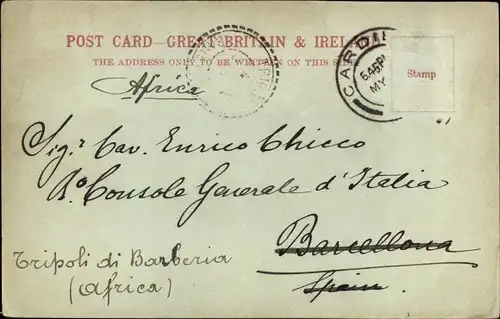 POST CARD—GREAT BRITAIN & IREL
THE ADDRESS ONLY TO BE WRITTEN ON THIS S
Stamp
CARDI
5.45PM
MY
Africa
Sig.r Cav. Enrico Chicco
R.o Console Generale d'Italia
Barcellona
Spain
Tripoli di Barberia
(Africa)